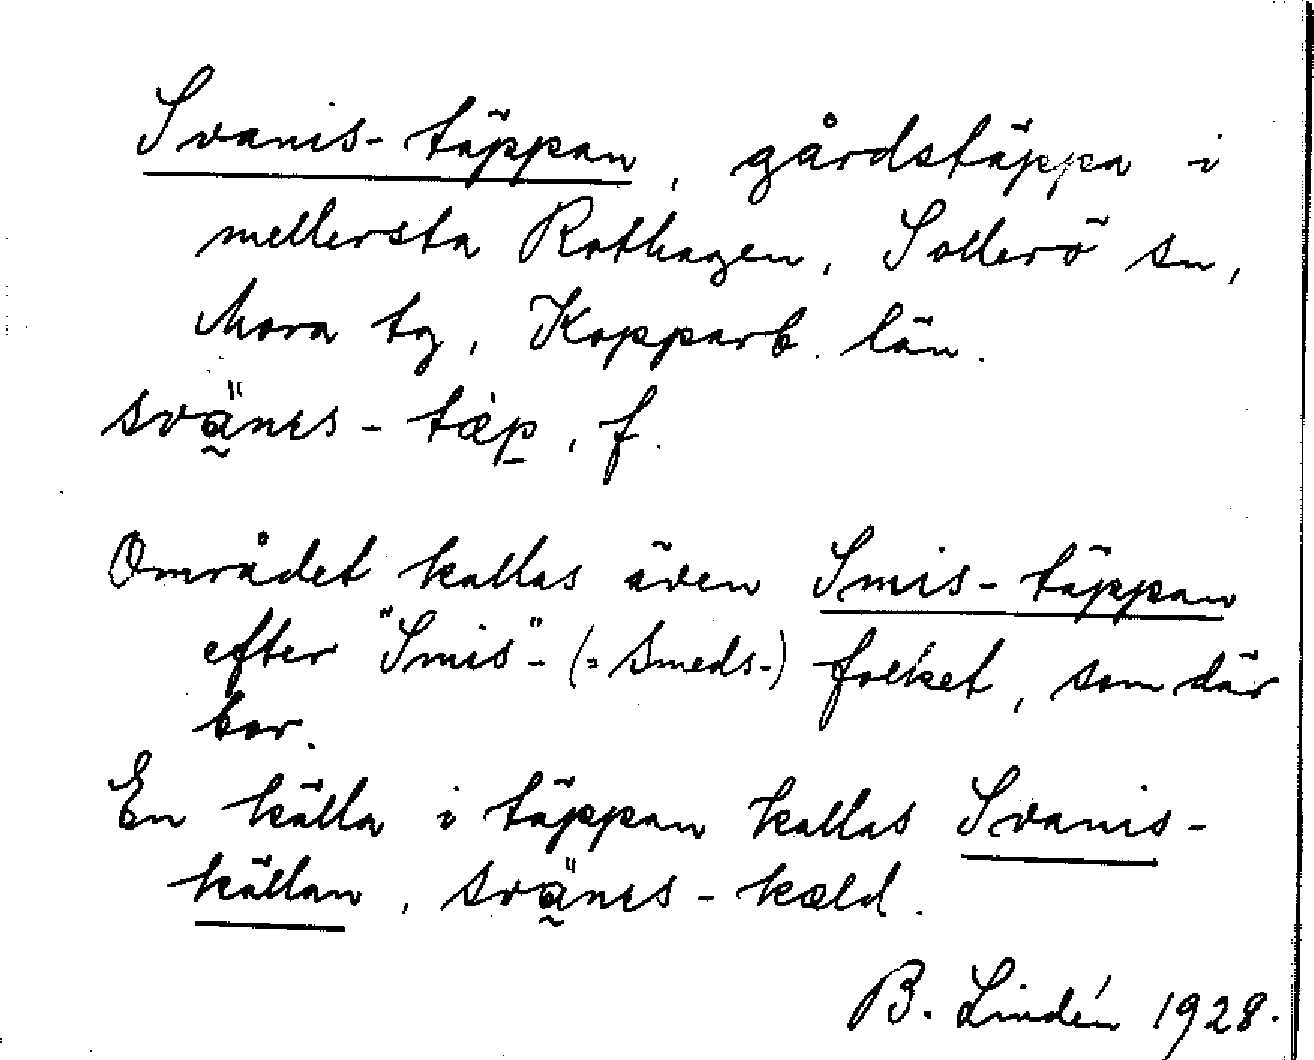 Svanis-täppan, gårdstäppa i
mellersta Rothagen, Sollerö sn,
Mora tg, Kopparb. län.
svänıs - tæp, f.
Området kallas även Smis-täppan
efter "Smis"- (= Smeds-) folket, som där
bor.
En källa i täppan kallas Svanis-
källan, svänıs - kæld.
B. Lindén 1928.